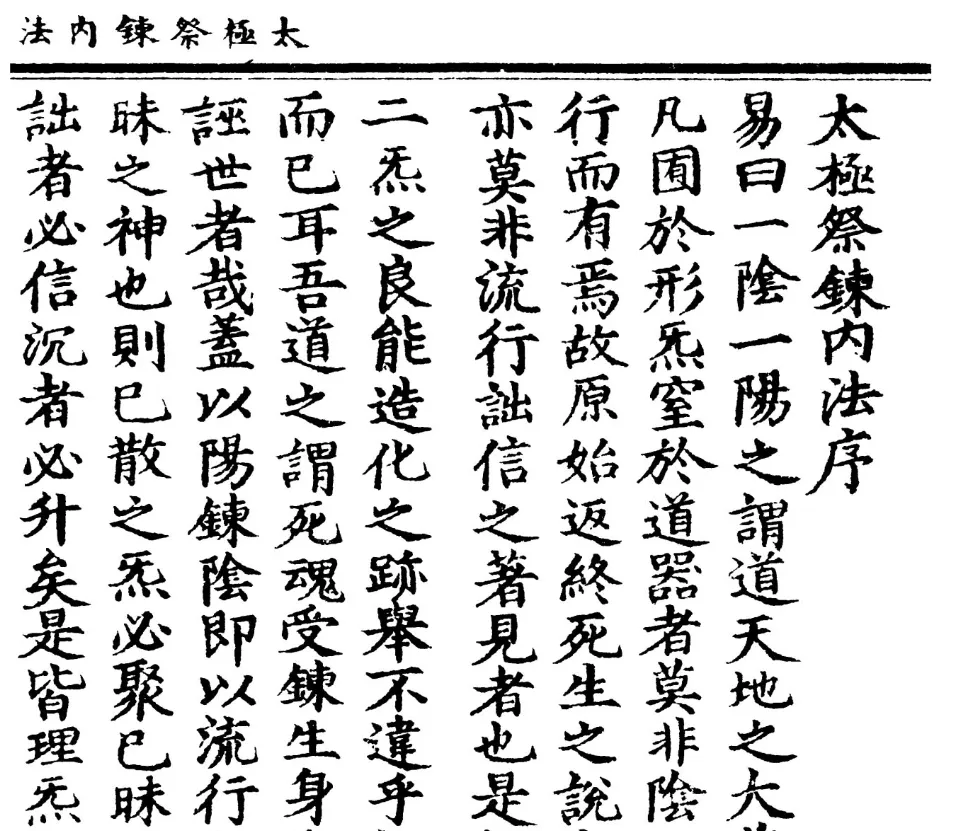 太極祭鍊內法
太極祭鍊內法序
易曰一陰一陽之謂道天地之大
凡囿於形炁窒於道器者莫非陰
行而有焉故原始返終死生之說
亦莫非流行詘信之著見者也是
二炁之良能造化之跡舉不違乎
而已耳吾道之謂死魂受鍊生身
誣世者哉蓋以陽鍊陰即以流行
昧之神也則已散之炁必聚已昧
詘者必信沉者必升矣是皆理炁